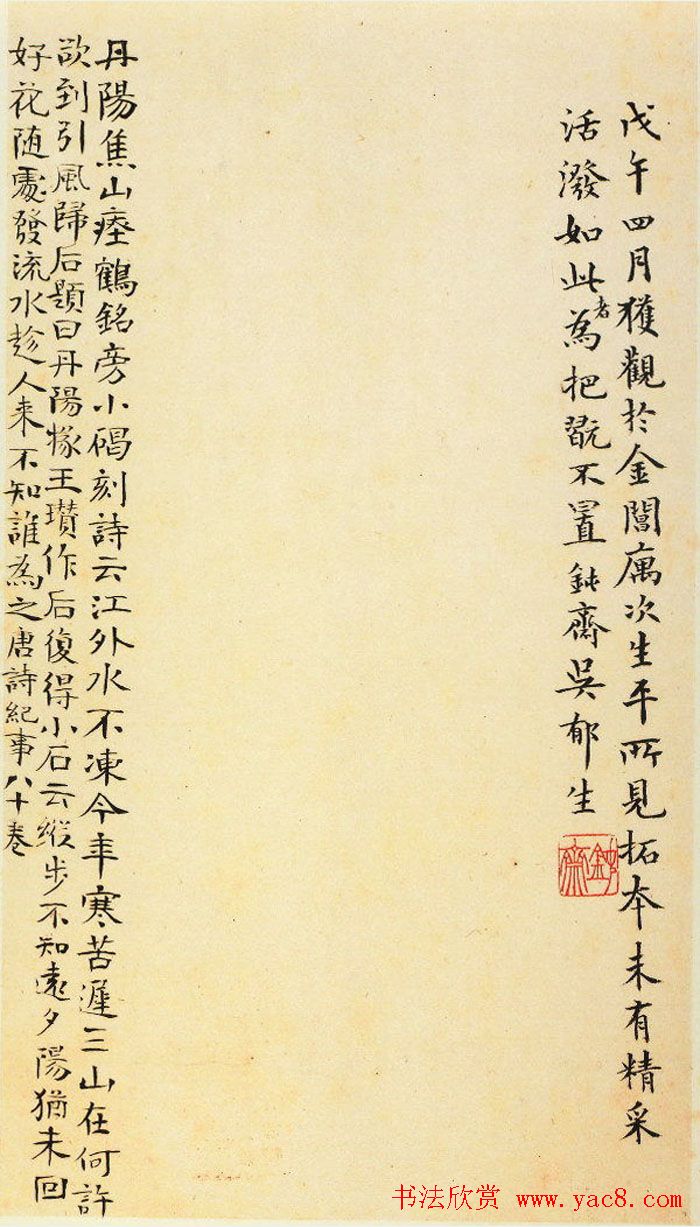 戊午四月獲觀於金閶寓次生平所見拓本未有精采
活潑如此者為把翫不置鈍齋吳郁生
鈍齋
丹陽焦山瘞鶴銘旁小碣刻詩云江外水不凍今年寒苦遲三山在何許
欲到引風歸后題曰丹陽掾王瓚作后復得小石云縱步不知遠夕陽猶未回
好花隨處發流水趁人来不知誰為之唐詩紀事八十卷
书法欣赏 www.yac8.com